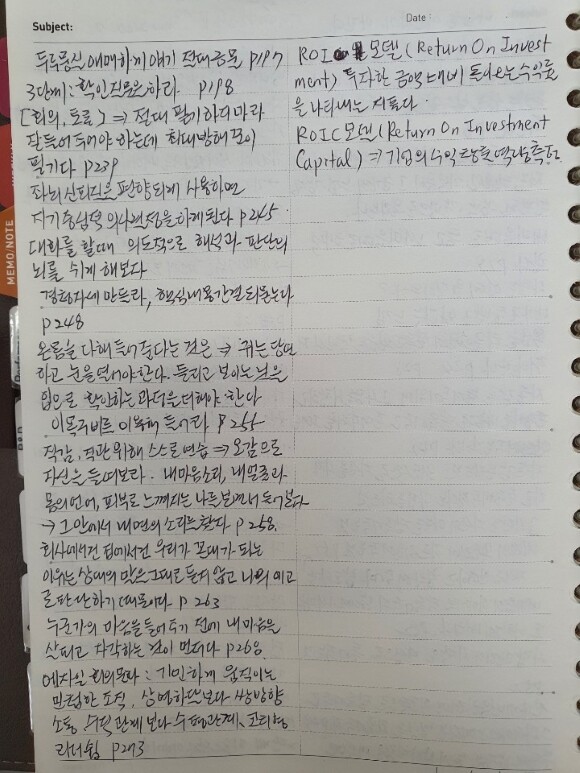 Subject:
Date :
두루뭉실 애매하게 얘기 절대금물 p197
3단계 : 확인질문을하라 p198
[회의, 토론] ⇒ 절대 필기하지마라
잘 들어주어야 하는데 최대방해꾼이
필기다 p239
좌뇌신피질을 편향되게 사용하면
자기중심적 의사결정을 하게된다 p245
대화를 할때 의도적으로 해석과 판단의
뇌를 쉬게 해보다
경청자세 만들라, 핵심내용간결 되묻는다
p248
온몸을 다해 들어준다는 것은 ⇒ 귀는 당연
하고 눈을 열어야한다. 들리고 보이는 것을
입으로 확인하는 과정을 더해야 한다
이목구비를 이용해 들어라 p255
직감, 직관 위해 스스로 연습 ⇒ 오감으로
자신을 들여다보라. 내마음소리, 내얼굴과
몸의 언어, 피부로 느껴지는 나를 보면서 들어본다
→ 그 안에서 내면의 소리를 찾다 p258.
회사에서건 집에서건 우리가 꼰대가 되는
이유는 상대의 말은 그대로 듣지 않고 나의 에고
로 판단하기 때문이다 p263
누군가의 마음을 들어주기 전에 내 마음을
살피고 자각하는 것이 먼저다 p268.
애자일 회의문화 : 기민하게 움직이는
민첩한 조직. 상명하달보다 쌍방향
소통, 수직관계 보다 수평관계, 코칭형
리더쉽 p273
MEMO/NOTE
ROI 모델 (Return On Invest
ment) 투자한 금액 대비 돌아오는 수익률
을 나타내는 지표다.
ROIC모델 (Return On Investment
Capital) ⇒ 기업의 수익 창출 역량측정.